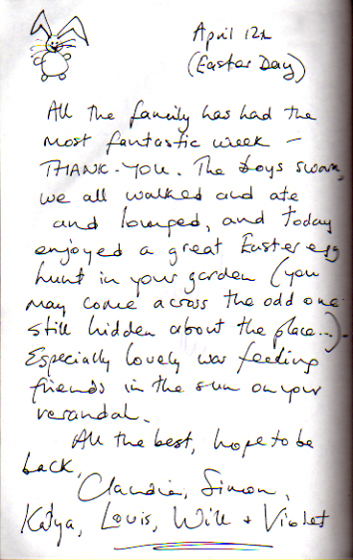 April 12th
(Easter Day)
All the family has had the
most fantastic week –
THANK-YOU. The boys swam,
we all walked and ate
and lounged, and today
enjoyed a great Easter egg
hunt in your garden (you
may come across the odd one
still hidden about the place...).
Especially lovely was feeding
friends in the sun on your
verandah.
All the best, hope to be
back,
Claudia, Simon,
Katya, Louis, Will + Violet